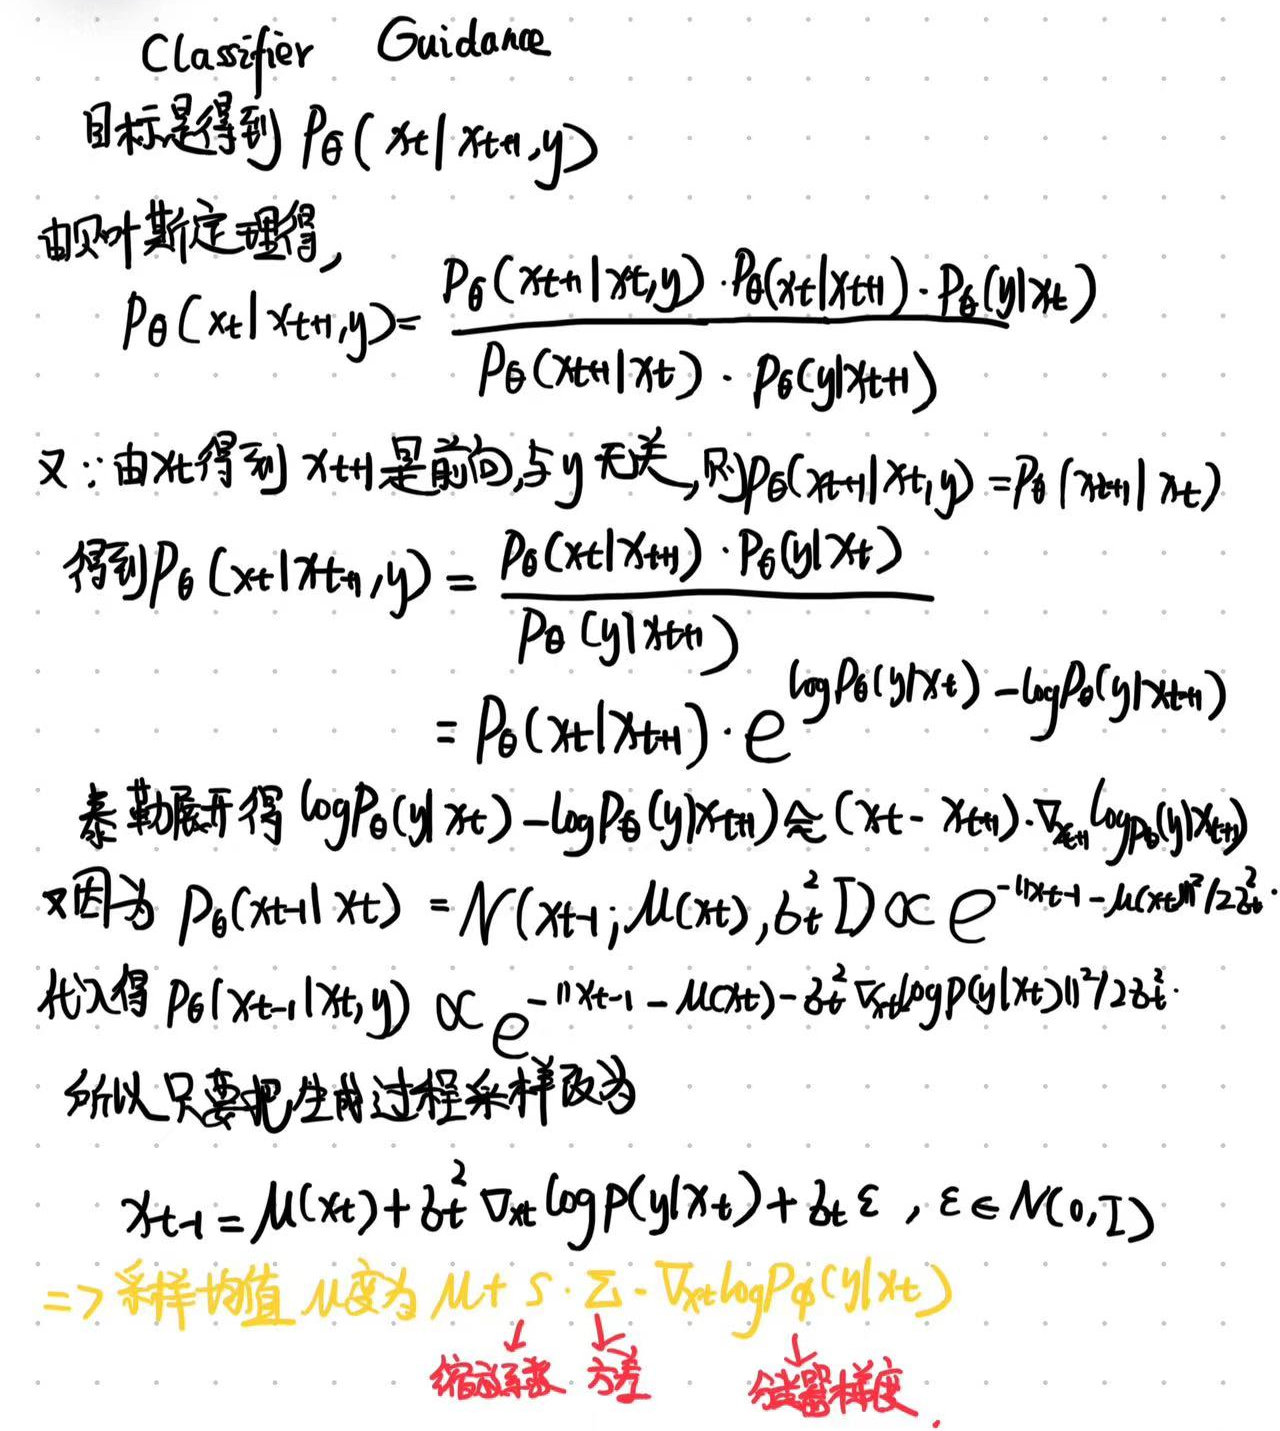 Classifier Guidance
目标是得到 Pθ(xt|xt+1,y)
由贝叶斯定理得,
Pθ(xt|xt+1,y)= Pθ(xt+1|xt,y)·Pθ(xt|xt+1)·Pθ(y|xt) / Pθ(xt+1|xt)·Pθ(y|xt+1)
又∵由xt得到xt+1是前向,与y无关,则Pθ(xt+1|xt,y)=Pθ(xt+1|xt)
得到Pθ(xt|xt+1,y) = Pθ(xt|xt+1)·Pθ(y|xt) / Pθ(y|xt+1)
= Pθ(xt|xt+1)·e^logPθ(y|xt)-logPθ(y|xt+1)
泰勒展开得 logPθ(y|xt)-logPθ(y|xt+1)≈(xt-xt+1)·∇xt+1 logpθ(y|xt+1)
又因为 Pθ(xt-1|xt) = N(xt-1;μ(xt),σt²I)∝e^-||xt-1-μ(xt)||²/2σt².
代入得 Pθ(xt-1|xt,y) ∝ e^-||xt-1-μ(xt)-σt²∇xt logp(y|xt)||²/2σt².
所以只要把生成过程采样改为
xt-1 = μ(xt)+σt²∇xt logp(y|xt)+σtε , ε∈N(0,I)
=> 采样均值 μ变为 μ+ s·Σ·∇xt logPφ(y|xt)
缩放系数 方差 分类器梯度.